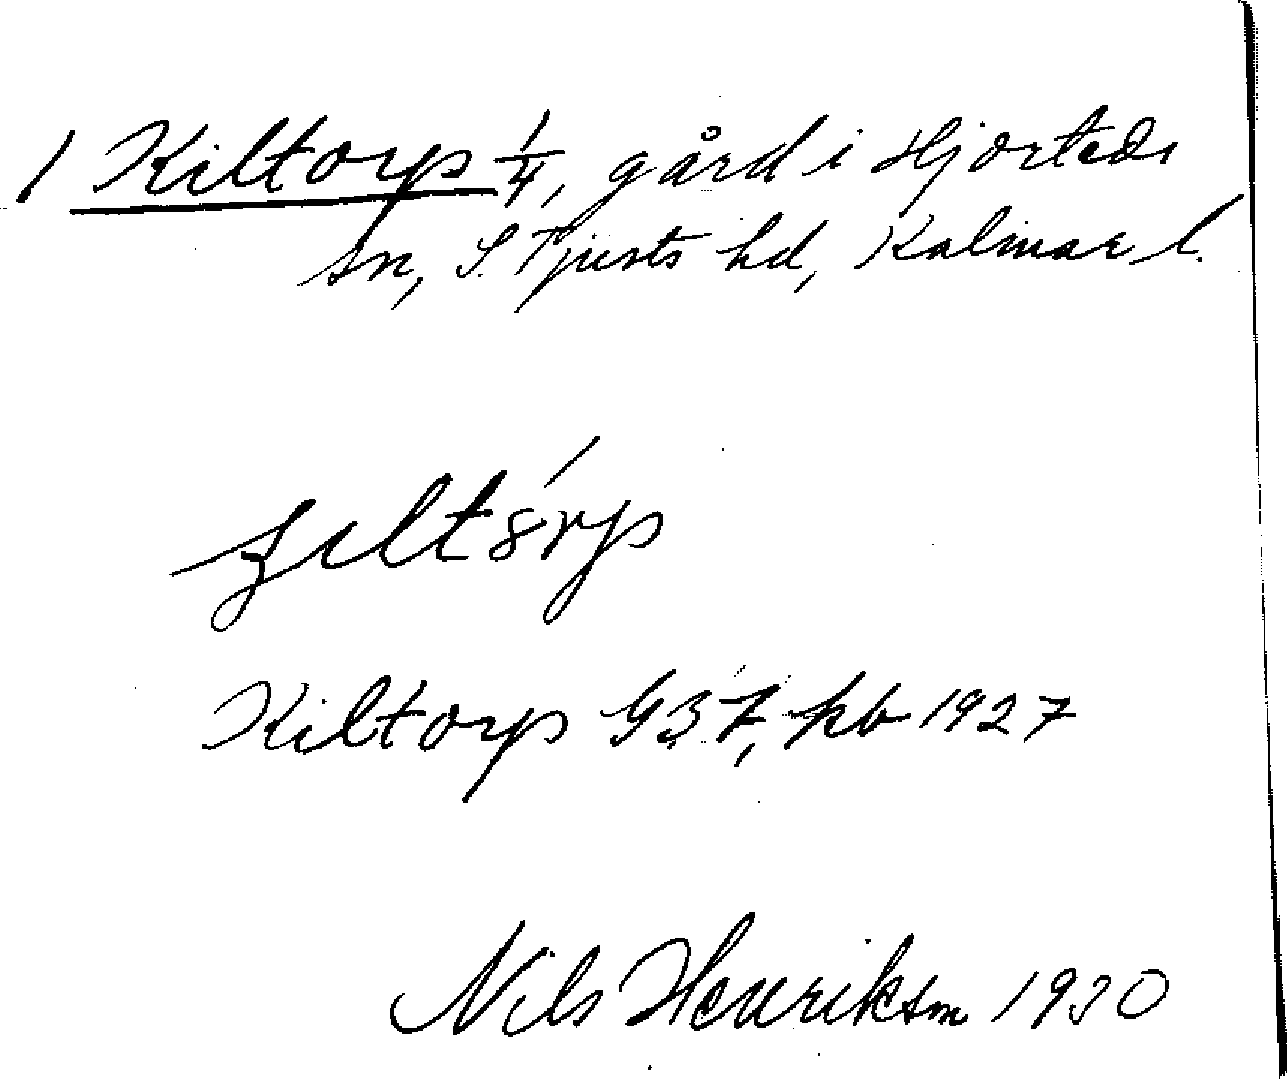 1 Kiltorp 1/4, gård i Hjorteds
sn, S. Tjusts hd, Kalmar l.
Kiltorp G37, kb 1927
Nils Henriksson 1930